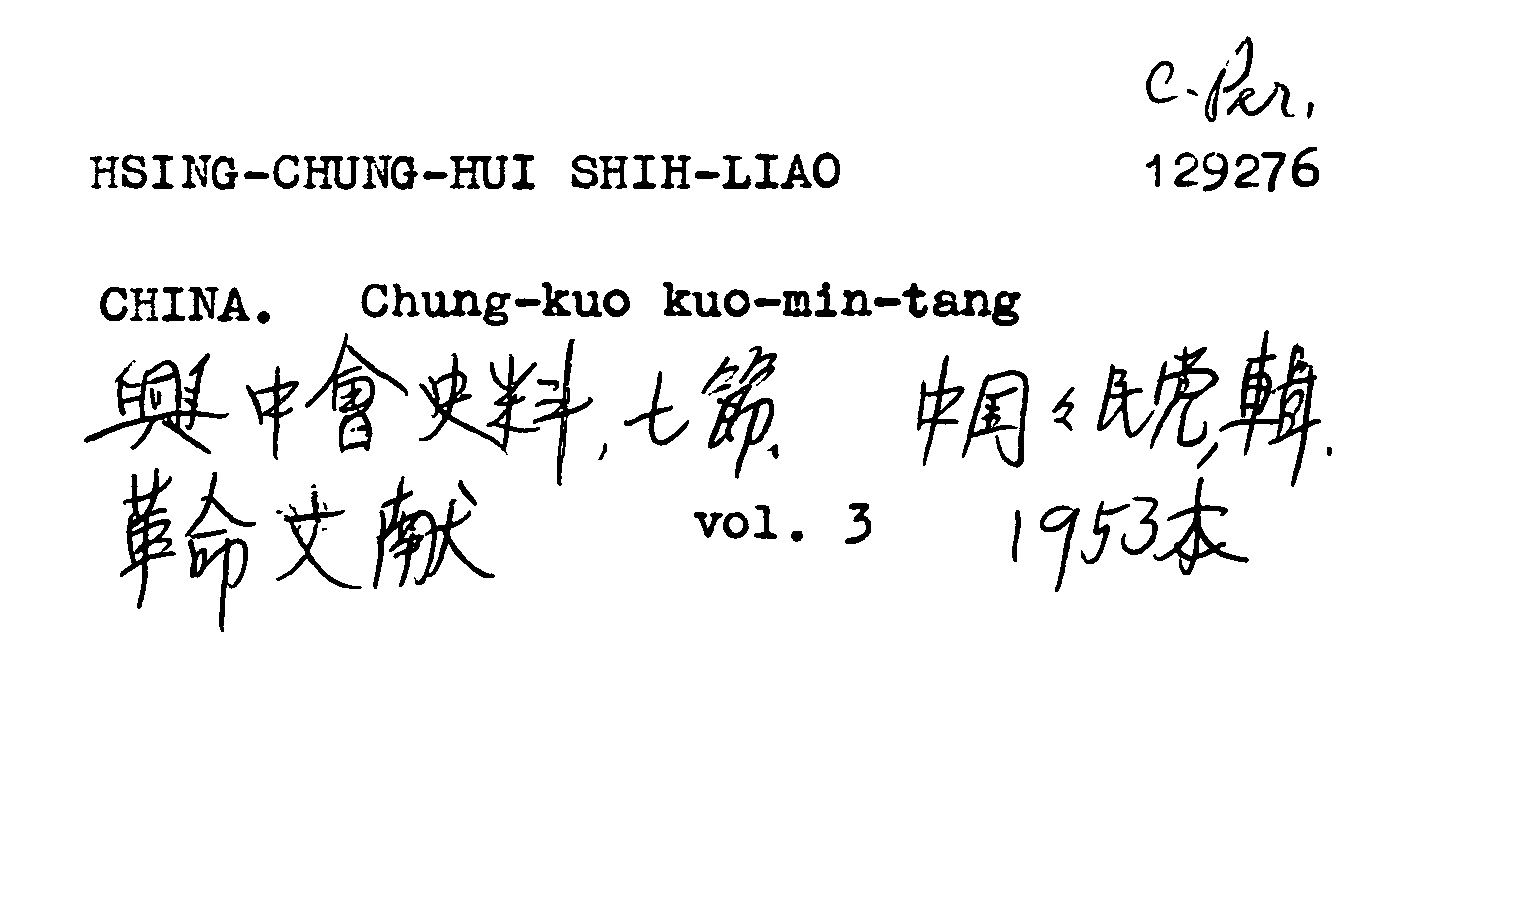 C. Per.
HSING-CHUNG-HUI SHIH-LIAO 129276
CHINA. Chung-kuo kuo-min-tang
興中會史料,七節. 中国々民党,輯.
革命文献 vol. 3 1953本